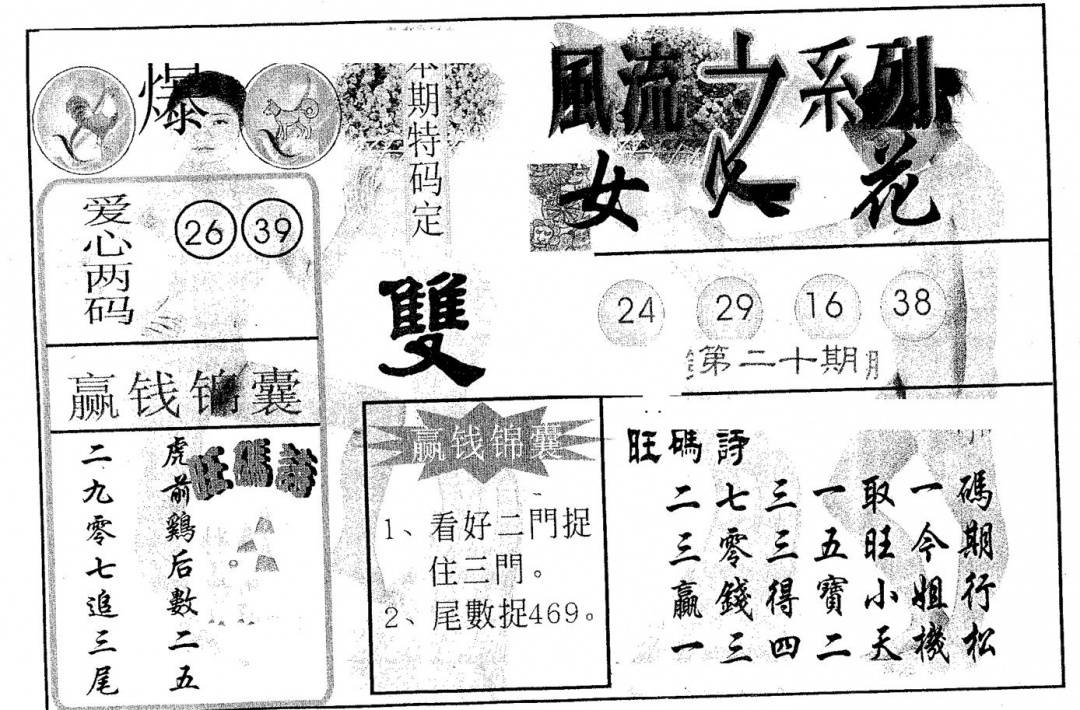 爆
本期特码定
雙
風流女系列
女人花
爱心两码
26 39
24 29 16 38
第二十期
赢钱锦囊
虎前鷄后數二五
二九零七追三尾
旺碼詩
赢钱锦囊
1、看好二門捉
住三門。
2、尾數捉469。
旺碼詩
碼期行松
一今姐機
取旺小天
一五寶二
三三得四
七零錢三
二三贏一